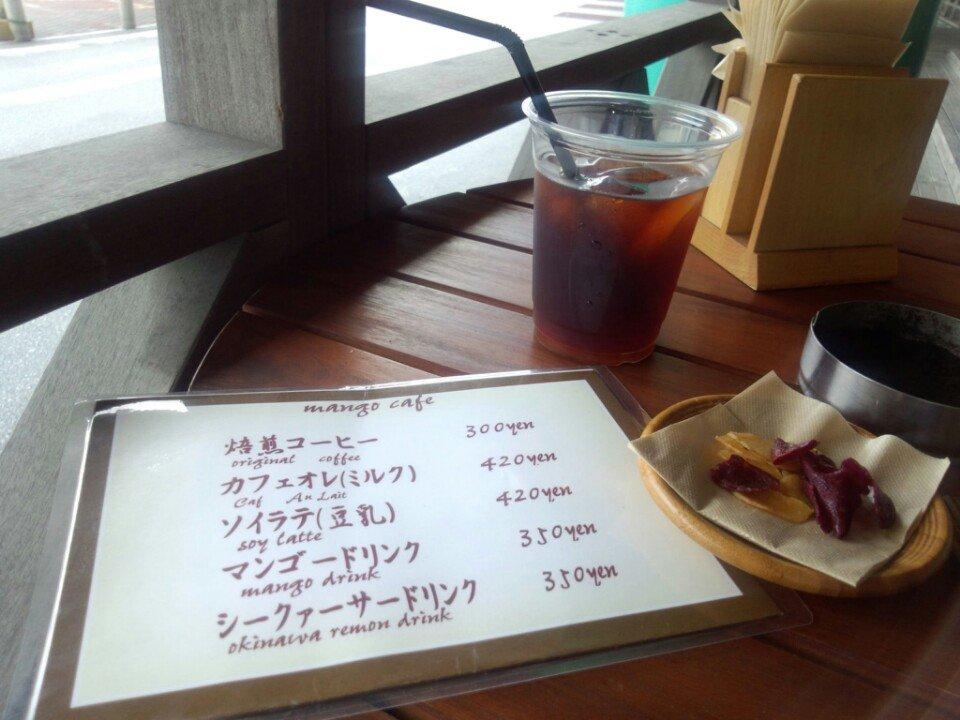 mango cafe
焙煎コーヒー 300yen
original coffee
カフェオレ(ミルク) 420yen
Caf Au Lait
ソイラテ(豆乳) 420yen
soy latte
マンゴードリンク 350yen
mango drink
シークァーサードリンク 350yen
okinawa remon drink